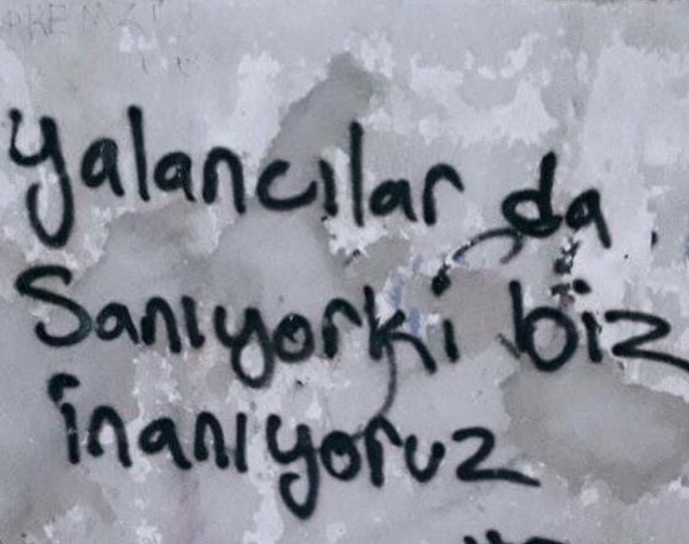 yalancılar da
Sanıyorki biz
inanıyoruz